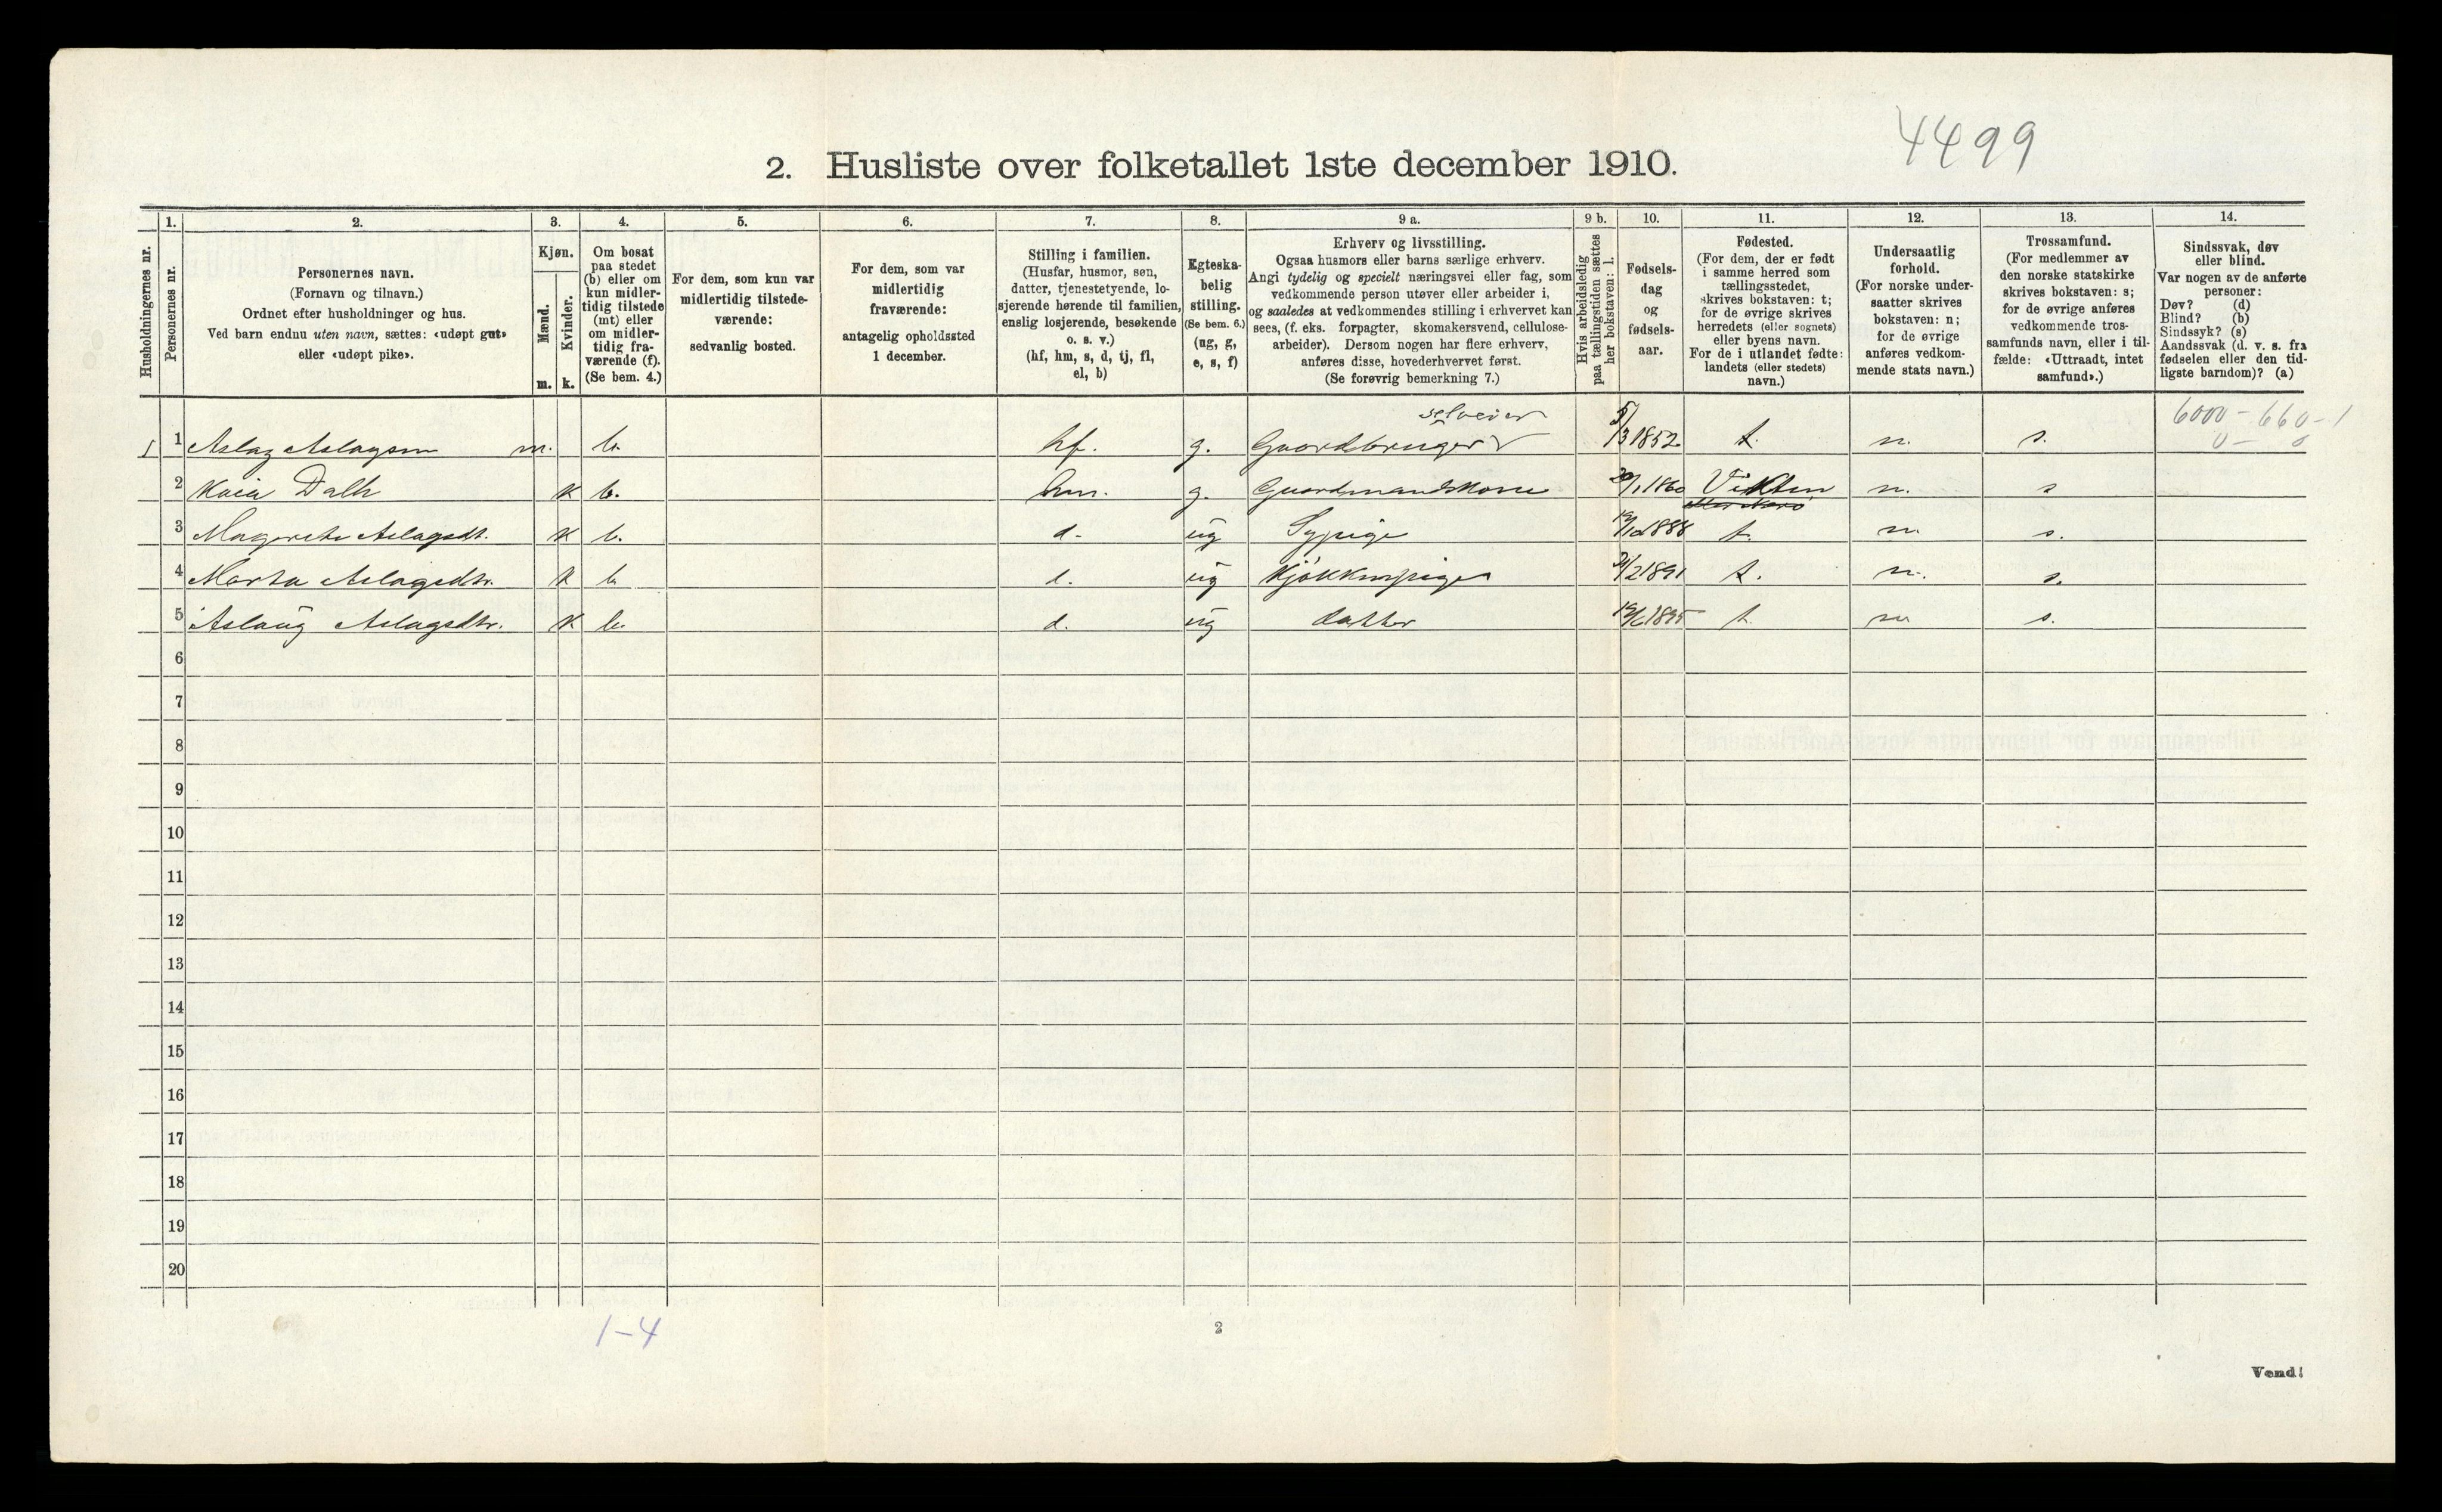 4499
2. Husliste over folketallet 1ste december 1910.
Husholdningernes nr.
1.
Personernes nr.
2.
Personernes navn.
(Fornavn og tilnavn.)
Ordnet efter husholdninger og hus.
Ved barn endnu uten navn, sættes: «udøpt gut»
eller «udøpt pike».
3.
Kjøn.
Mænd.
Kvinder.
m. k.
4.
Om bosat
paa stedet
(b) eller om
kun midler-
tidig tilstede
(mt) eller
om midler-
tidig fra-
værende (f).
(Se bem. 4.)
5.
For dem, som kun var
midlertidig tilstede-
værende:
sedvanlig bosted.
6.
For dem, som var
midlertidig
fraværende:
antagelig opholdssted
1 december.
7.
Stilling i familien.
(Husfar, husmor, søn,
datter, tjenestetyende, lo-
sjerende hørende til familien,
enslig losjerende, besøkende
o. s. v.)
(hf, hm, s, d, tj, fl,
el, b)
8.
Egteska-
belig
stilling.
(Se bem. 6.)
(ug, g,
e, s, f)
9 a.
Erhverv og livsstilling.
Ogsaa husmors eller barns særlige erhverv.
Angi tydelig og specielt næringsvei eller fag, som
vedkommende person utøver eller arbeider i,
og saaledes at vedkommendes stilling i erhvervet kan
sees, (f. eks. forpagter, skomakersvend, cellulose-
arbeider). Dersom nogen har flere erhverv,
anføres disse, hovederhvervet først.
(Se forøvrig bemerkning 7.)
9 b.
Hvis arbeidsledig
paa tællingstiden sættes
her bokstaven: l.
10.
Fødsels-
dag
og
fødsels-
aar.
11.
Fødested.
(For dem, der er født
i samme herred som
tællingsstedet,
skrives bokstaven: t;
for de øvrige skrives
herredets (eller sognets)
eller byens navn.
For de i utlandet fødte:
landets (eller stedets)
navn.)
12.
Undersaatlig
forhold.
(For norske under-
saatter skrives
bokstaven: n;
for de øvrige
anføres vedkom-
mende stats navn.)
13.
Trossamfund.
(For medlemmer av
den norske statskirke
skrives bokstaven: s;
for de øvrige anføres
vedkommende tros-
samfunds navn, eller i til-
fælde: «Uttraadt, intet
samfund».)
14.
Sindssvak, døv
eller blind.
Var nogen av de anførte
personer:
Døv? (d)
Blind? (b)
Sindssyk? (s)
Aandssvak (d. v. s. fra
fødselen eller den tid-
ligste barndom)? (a)
6000 - 660 - 1
0 - 0
selveier
1 Aslag Aslagsen m. b. hf. g. Gaardbruger 5/3 1852 t. n. s.
2 Kaia Dalh k b. hm. g. Gaardmandskone 1860 n. s
3 Magrethe Aslagsdt. k b. d. ug Sypige 1888 t. n. s.
4 Marta Aslagsdtr. k b d. ug Kjøkkenpige 1891 t. n. s.
5 Aslaug Aslagsdtr. k b. d. ug datter 19/6 1895 t. n s.
6
7
8
9
10
11
12
13
14
15
16
17
18
19
20
1-4
2
Vend!